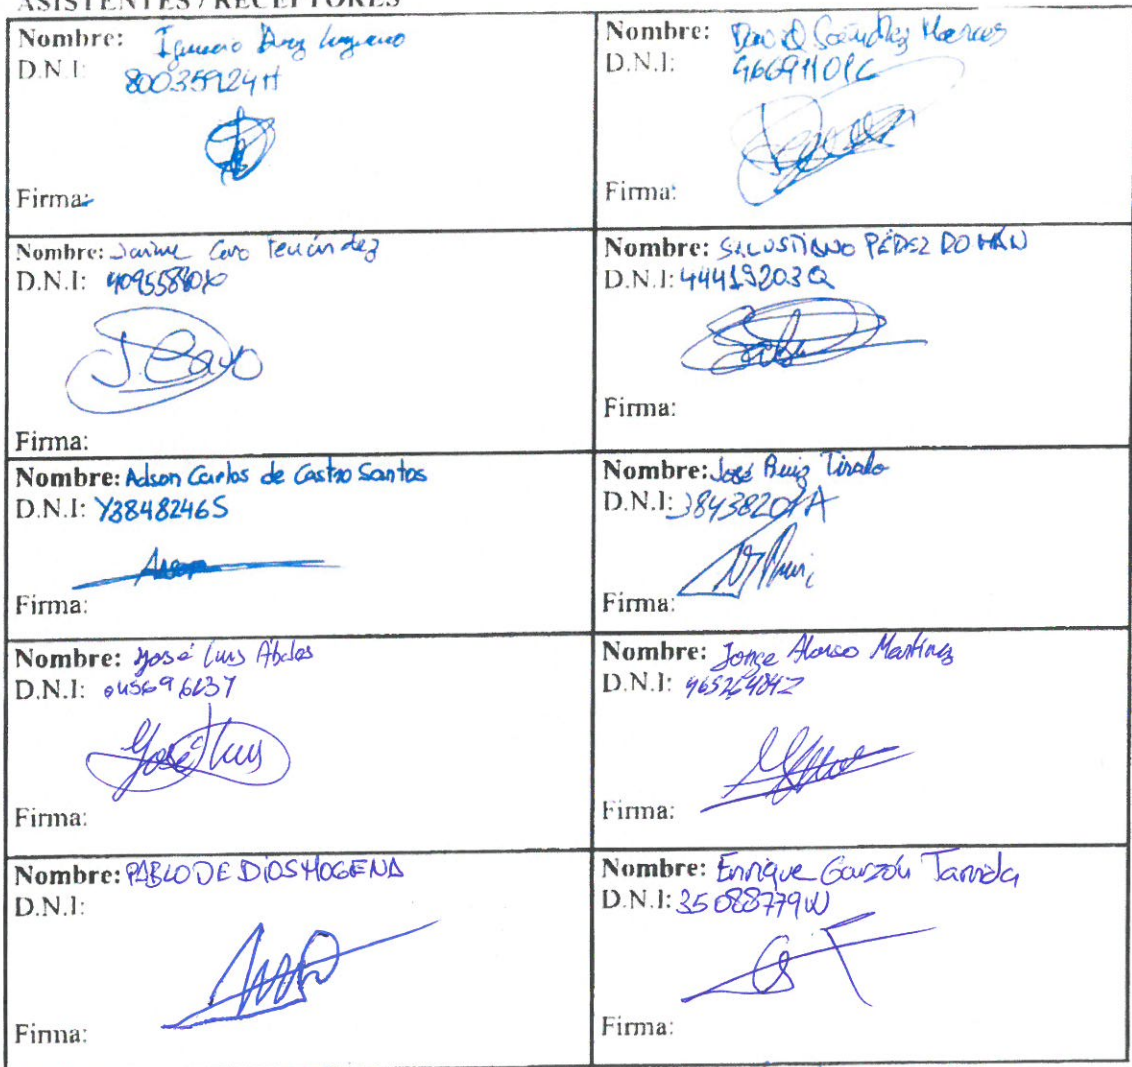 ASISTENTES / RECEPTORES
Nombre: Ignacio
D.N.I: 80035924H
Firma:
Nombre: David Sánchez Marcos
D.N.I:
Firma:
Nombre: Jaime Cavo Fernández
D.N.I:
J. Cavo
Firma:
Nombre: SALUSTIANO PÉREZ ROMÁN
D.N.I: 44419203Q
Firma:
Nombre: Adson Carlos de Castro Santos
D.N.I: Y3848246S
Firma:
Nombre: José Ruiz Tirado
D.N.I: 38438207A
Firma:
Nombre: José Luis Abdos
D.N.I:
José Luis
Firma:
Nombre: Jorge Alonso Martínez
D.N.I:
Firma:
Nombre: PABLO DE DIOS MOGENA
D.N.I:
Firma:
Nombre: Enrique Garzón Tarrida
D.N.I: 35088779W
Firma: